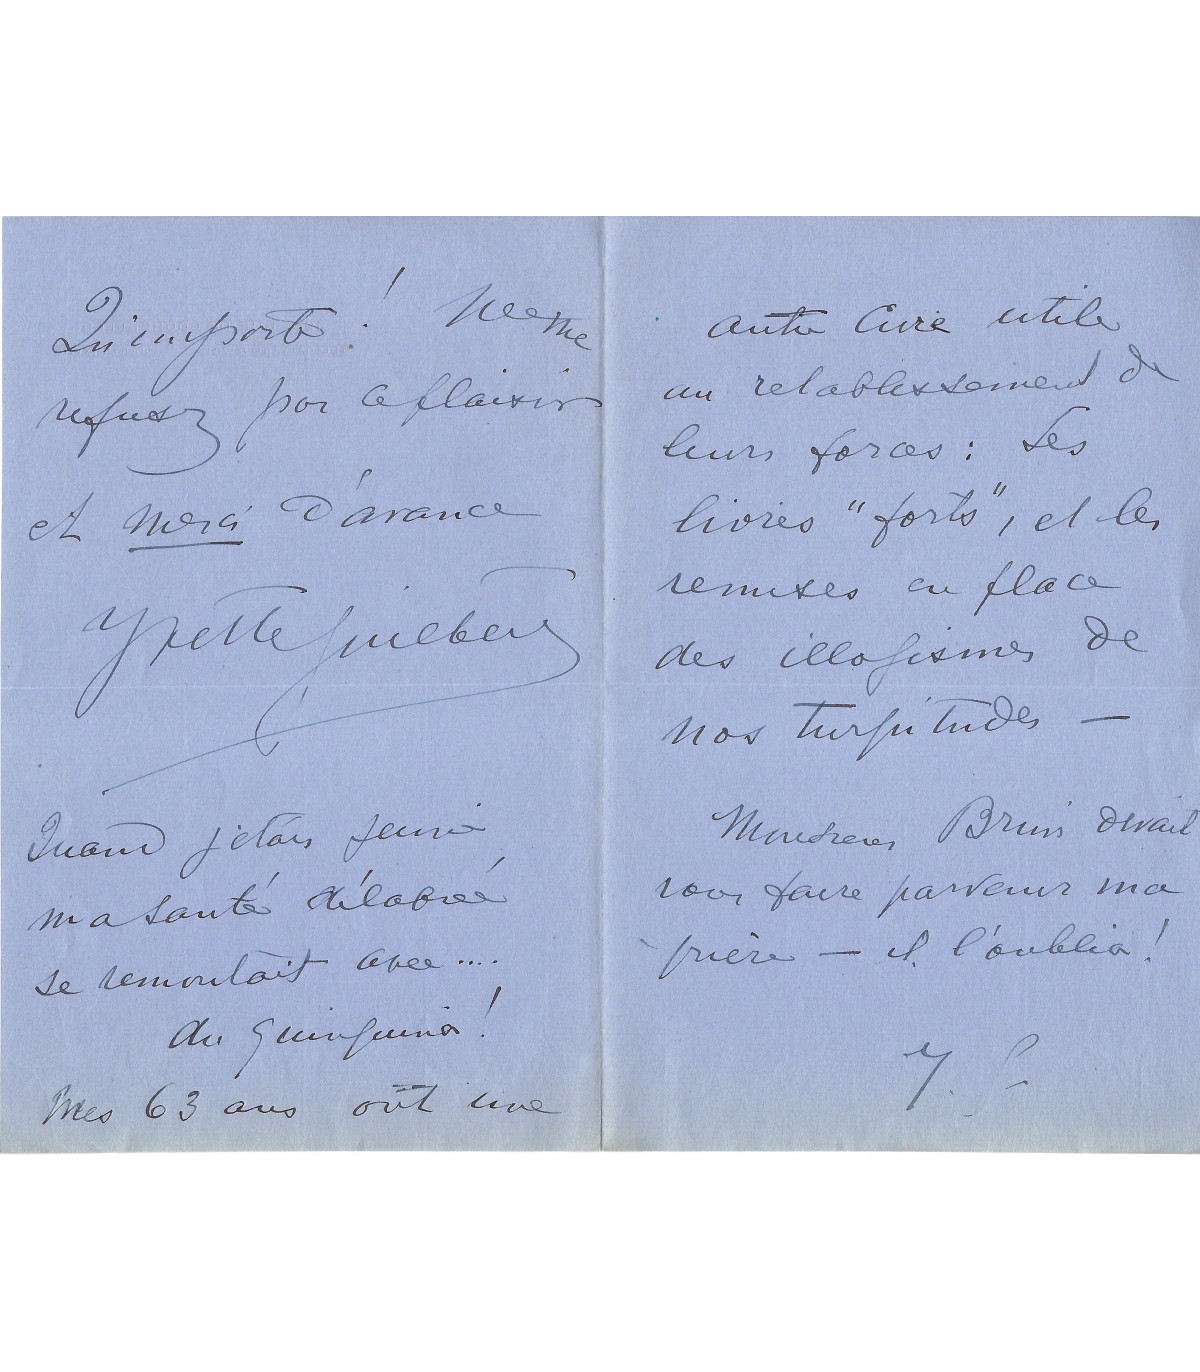 Qu'importe! Ne me
refusez pas ce plaisir
et merci d'avance
Yvette Guilbert
Quand j'étais jeune
ma santé délabrée
se remontait avec....
du Quinquina!
Mes 63 ans ont une
autre cure utile
au rétablissement de
leurs forces: Les
livres "forts", et les
remises en place
des illogismes de
nos turpitudes —
Monsieur Brun devait
vous faire parvenir ma
prière — il l'oublia!
Y. G